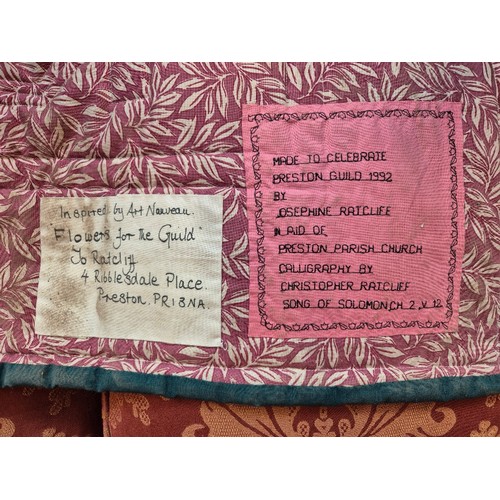 Inspired by Art Nouveau.
"Flowers for the Guild"
Jo Ratcliff
4 Ribblesdale Place.
Preston. PR1 3NA.
MADE TO CELEBRATE
PRESTON GUILD 1992
BY
JOSEPHINE RATCLIFF
IN AID OF
PRESTON PARISH CHURCH
CALLIGRAPHY BY
CHRISTOPHER RATCLIFF
SONG OF SOLOMON CH 2, V 12